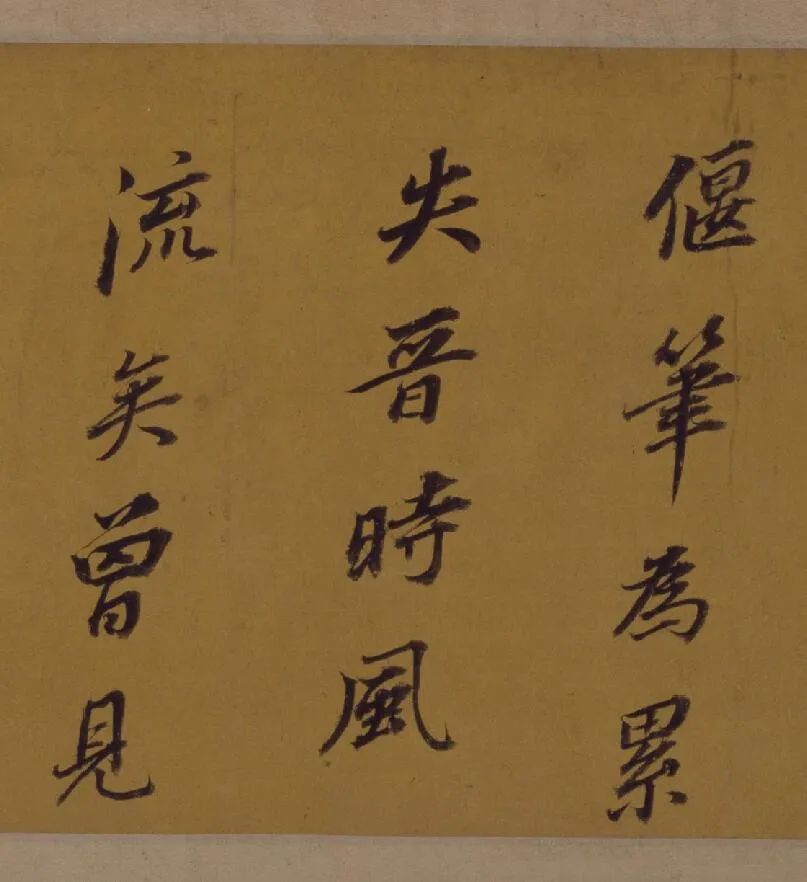 偃筆為累
失晋時風
流矣曾見